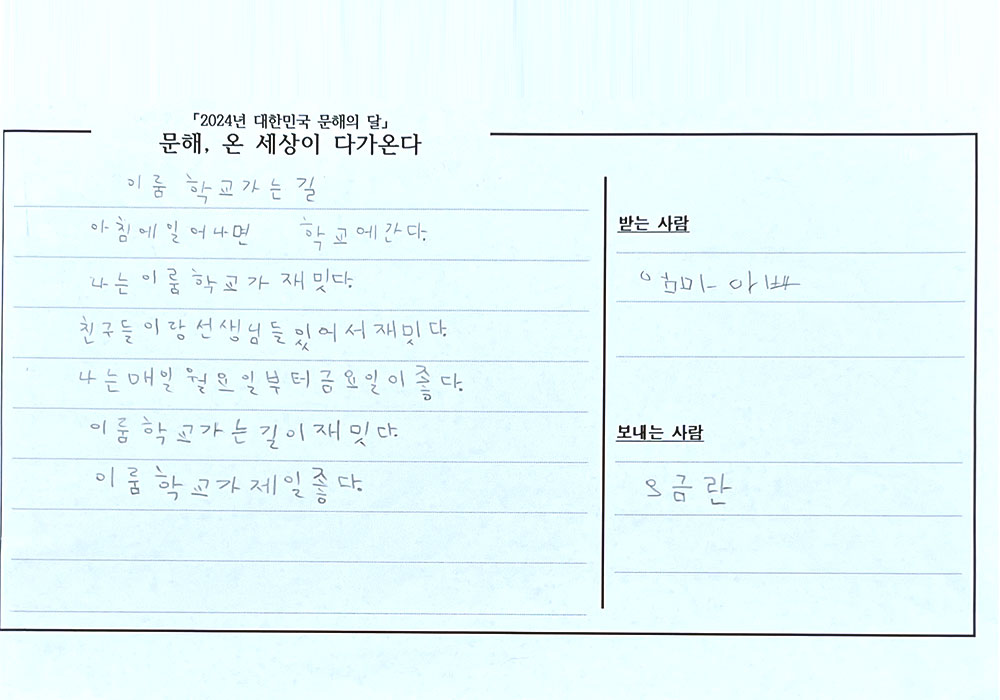 「2024년 대한민국 문해의 달」
문해, 온 세상이 다가온다
이룸 학교가는 길
아침에일어나면 학교에간다.
나는이룸학교가 재밋다.
친구들이랑선생님들있어서재밋다.
나는매일월요일부터금요일이좋다.
이룸학교가는길이재밋다.
이룸학교가제일좋다.
받는 사람
엄마 아빠
보내는 사람
오금란